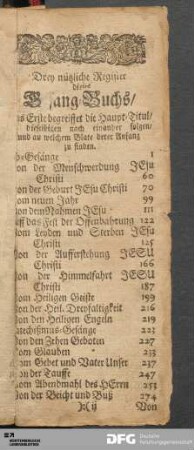 Drey nützliche Register
dieses
Gesang-Buchs/
Das Erste begreiffet die Haupt-Titul/
dieselbigen nach einander folgen/
und an welchem Blate derer Anfang
zu finden.
Gesänge 1
Von der Menschwerdung JEsu
Christi 60
Von der Geburt JEsu Christi 70
Vom neuen Jahr 99
Von dem Nahmen JEsu 111
Auff das Fest der Offenbahrung 122
Vom Leyden und Sterben JEsu
Christi 125
Von der Aufferstehung JESU
Christi 166
Von der Himmelfahrt JESU
Christi 187
Vom Heiligen Geiste 199
Von der Heil. Dreyfaltigkeit 216
Von den Heiligen Engeln 219
Catechismus-Gesänge 223
Von den Zehen Geboten 227
Vom Glauben 233
Vom Gebet und Vater Unser 237
Von der Tauffe 247
Vom Abendmahl des HErrn 253
Von der Beicht und Buß 274
Von
DFG Deutsche
Forschungsgemeinschaft